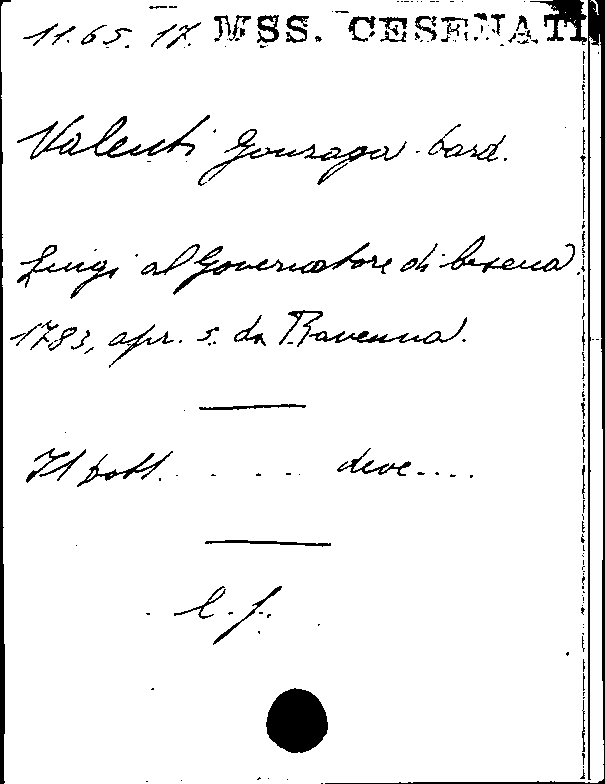 11.65.17. MSS. CESENATI
Valenti Gonzaga Card.
Luigi al Governatore di Cesena.
1783, apr. 5. da Ravenna.
Il Dott. . . . . . deve....
C. f.